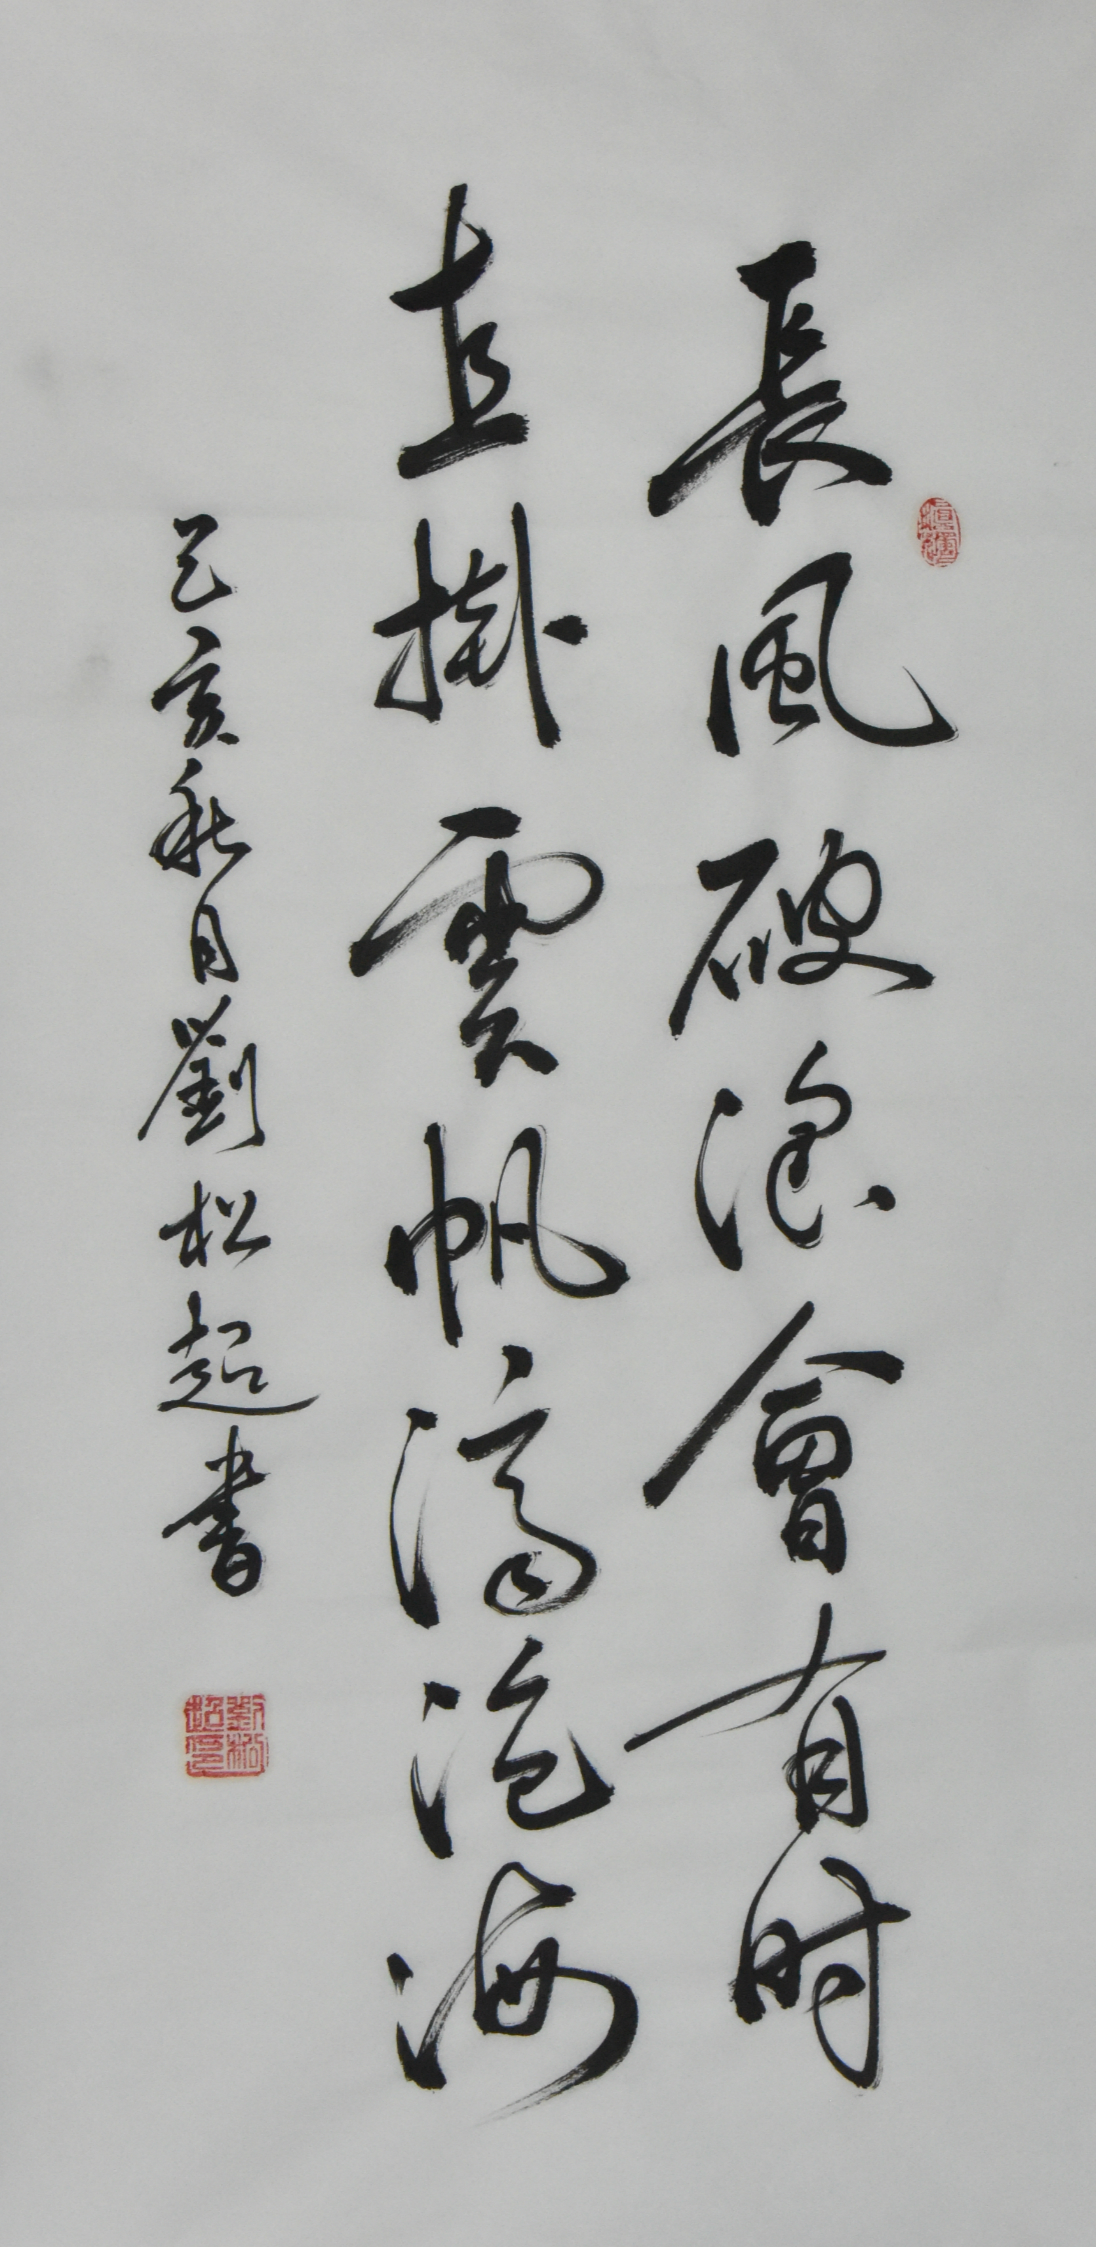 長風破浪會有时
直掛雲帆濟滄海
己亥秋月劉松超書
劉松超印